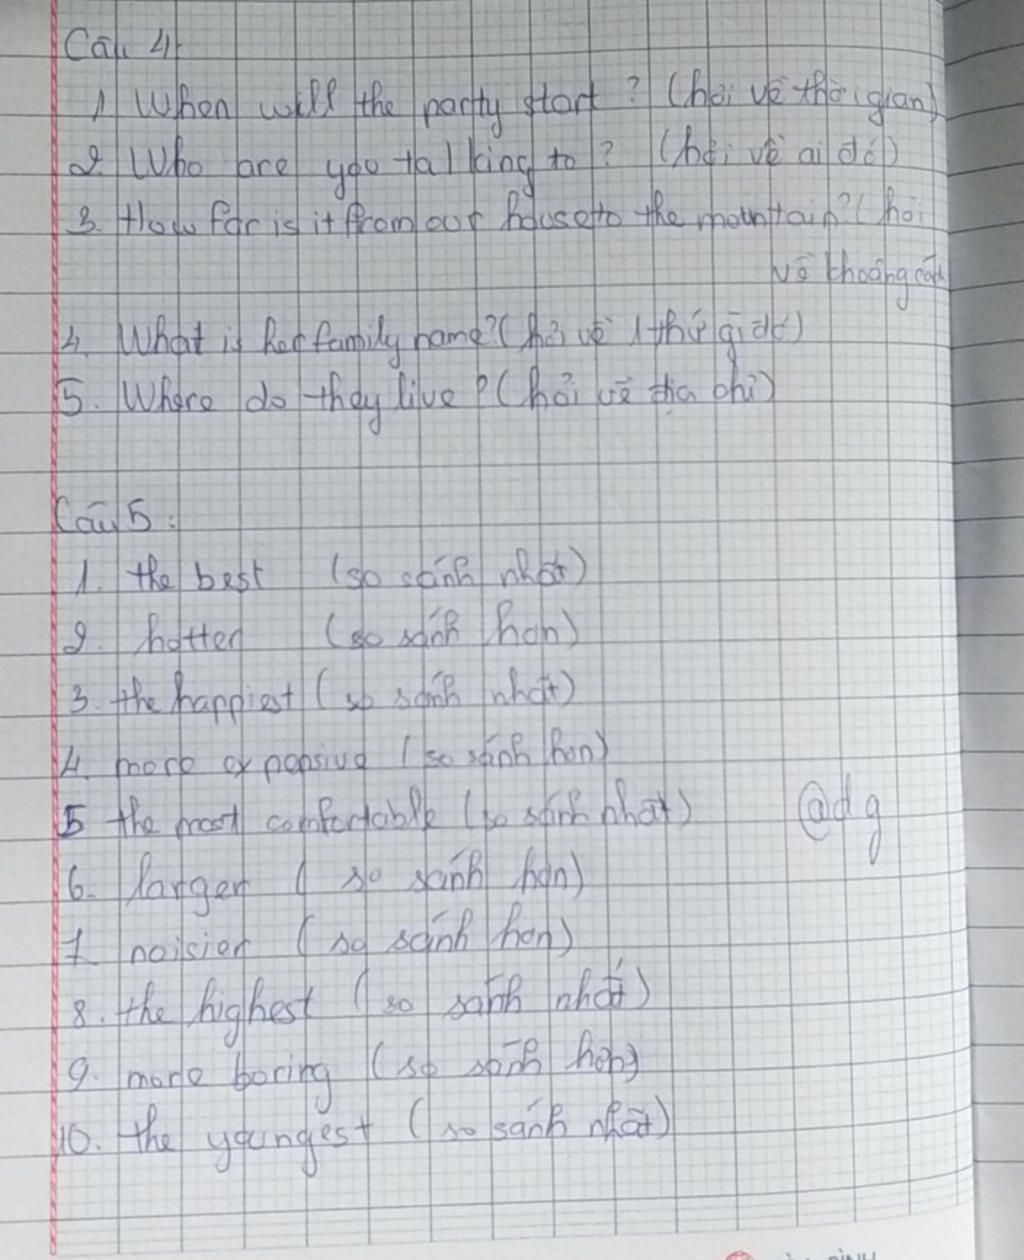 Câu 4
1 When will the party start ? (hỏi về thời gian)
2 Who are you talking to ? (hỏi về ai đó)
3. How far is it from our house to the mountain? ( hỏi
về khoảng cách
4. What is her family name? (hỏi về 1 thứ gì đó)
5. Where do they live ? (hỏi về địa chỉ)
Câu 5:
1. the best (so sánh nhất)
2. hotter (so sánh hơn)
3. the happiest (so sánh nhất)
4. more expensive (so sánh hơn)
5 the most comfortable (so sánh nhất) @dg
6. larger ( so sánh hơn)
7. noisier ( so sánh hơn)
8. the highest (so sánh nhất)
9. more boring (so sánh hơn)
10. the youngest (so sánh nhất)